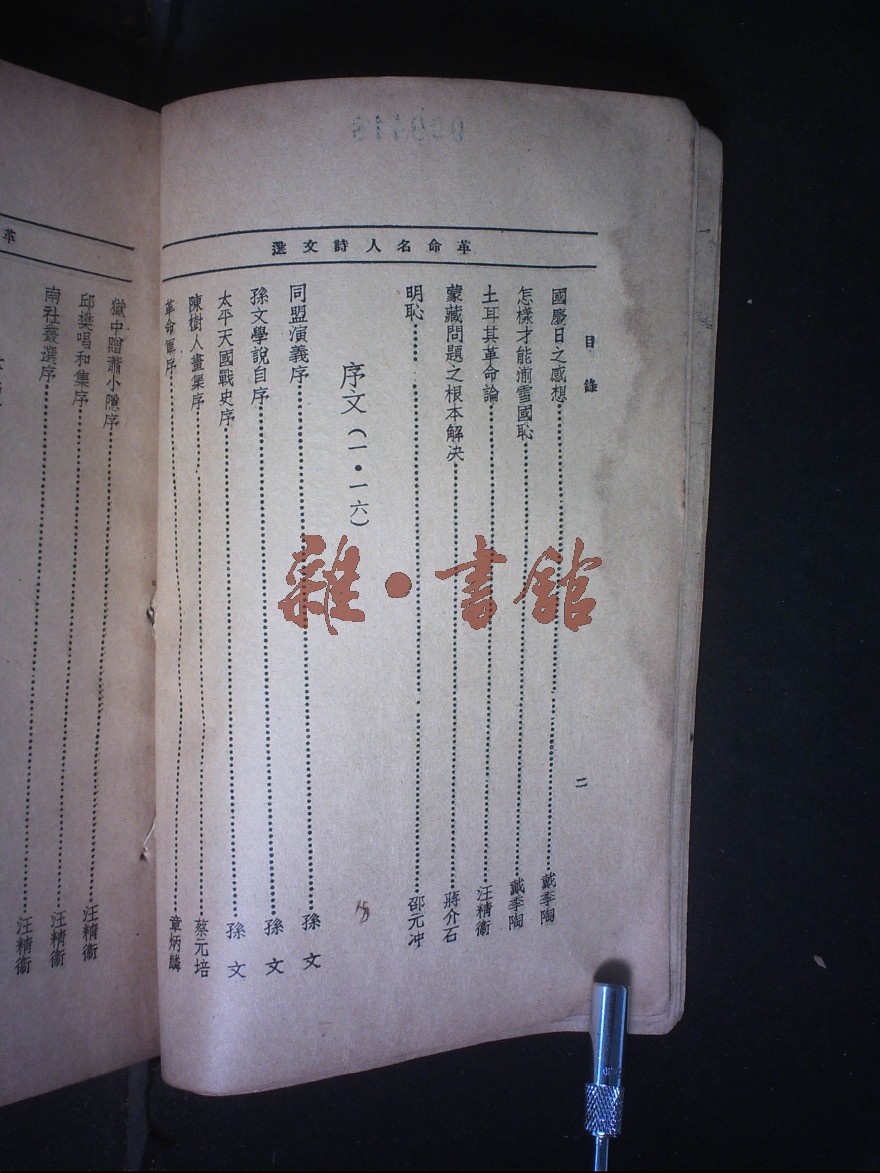 革命名人詩文選
目錄
二
國慶日之感想 戴季陶
怎樣才能湔雪國恥 戴季陶
土耳其革命論 汪精衞
蒙藏問題之根本解決 蔣介石
明恥 邵元冲
序文(一•一六)
同盟演義序 孫文
孫文學說自序 孫文
太平天國戰史序 孫文
陳樹人畫集序 蔡元培
革命軍序 章炳麟
革
獄中贈蕭小隱序 汪精衞
邱樊唱和集序 汪精衞
南社叢選序 汪精衞
雜•書館